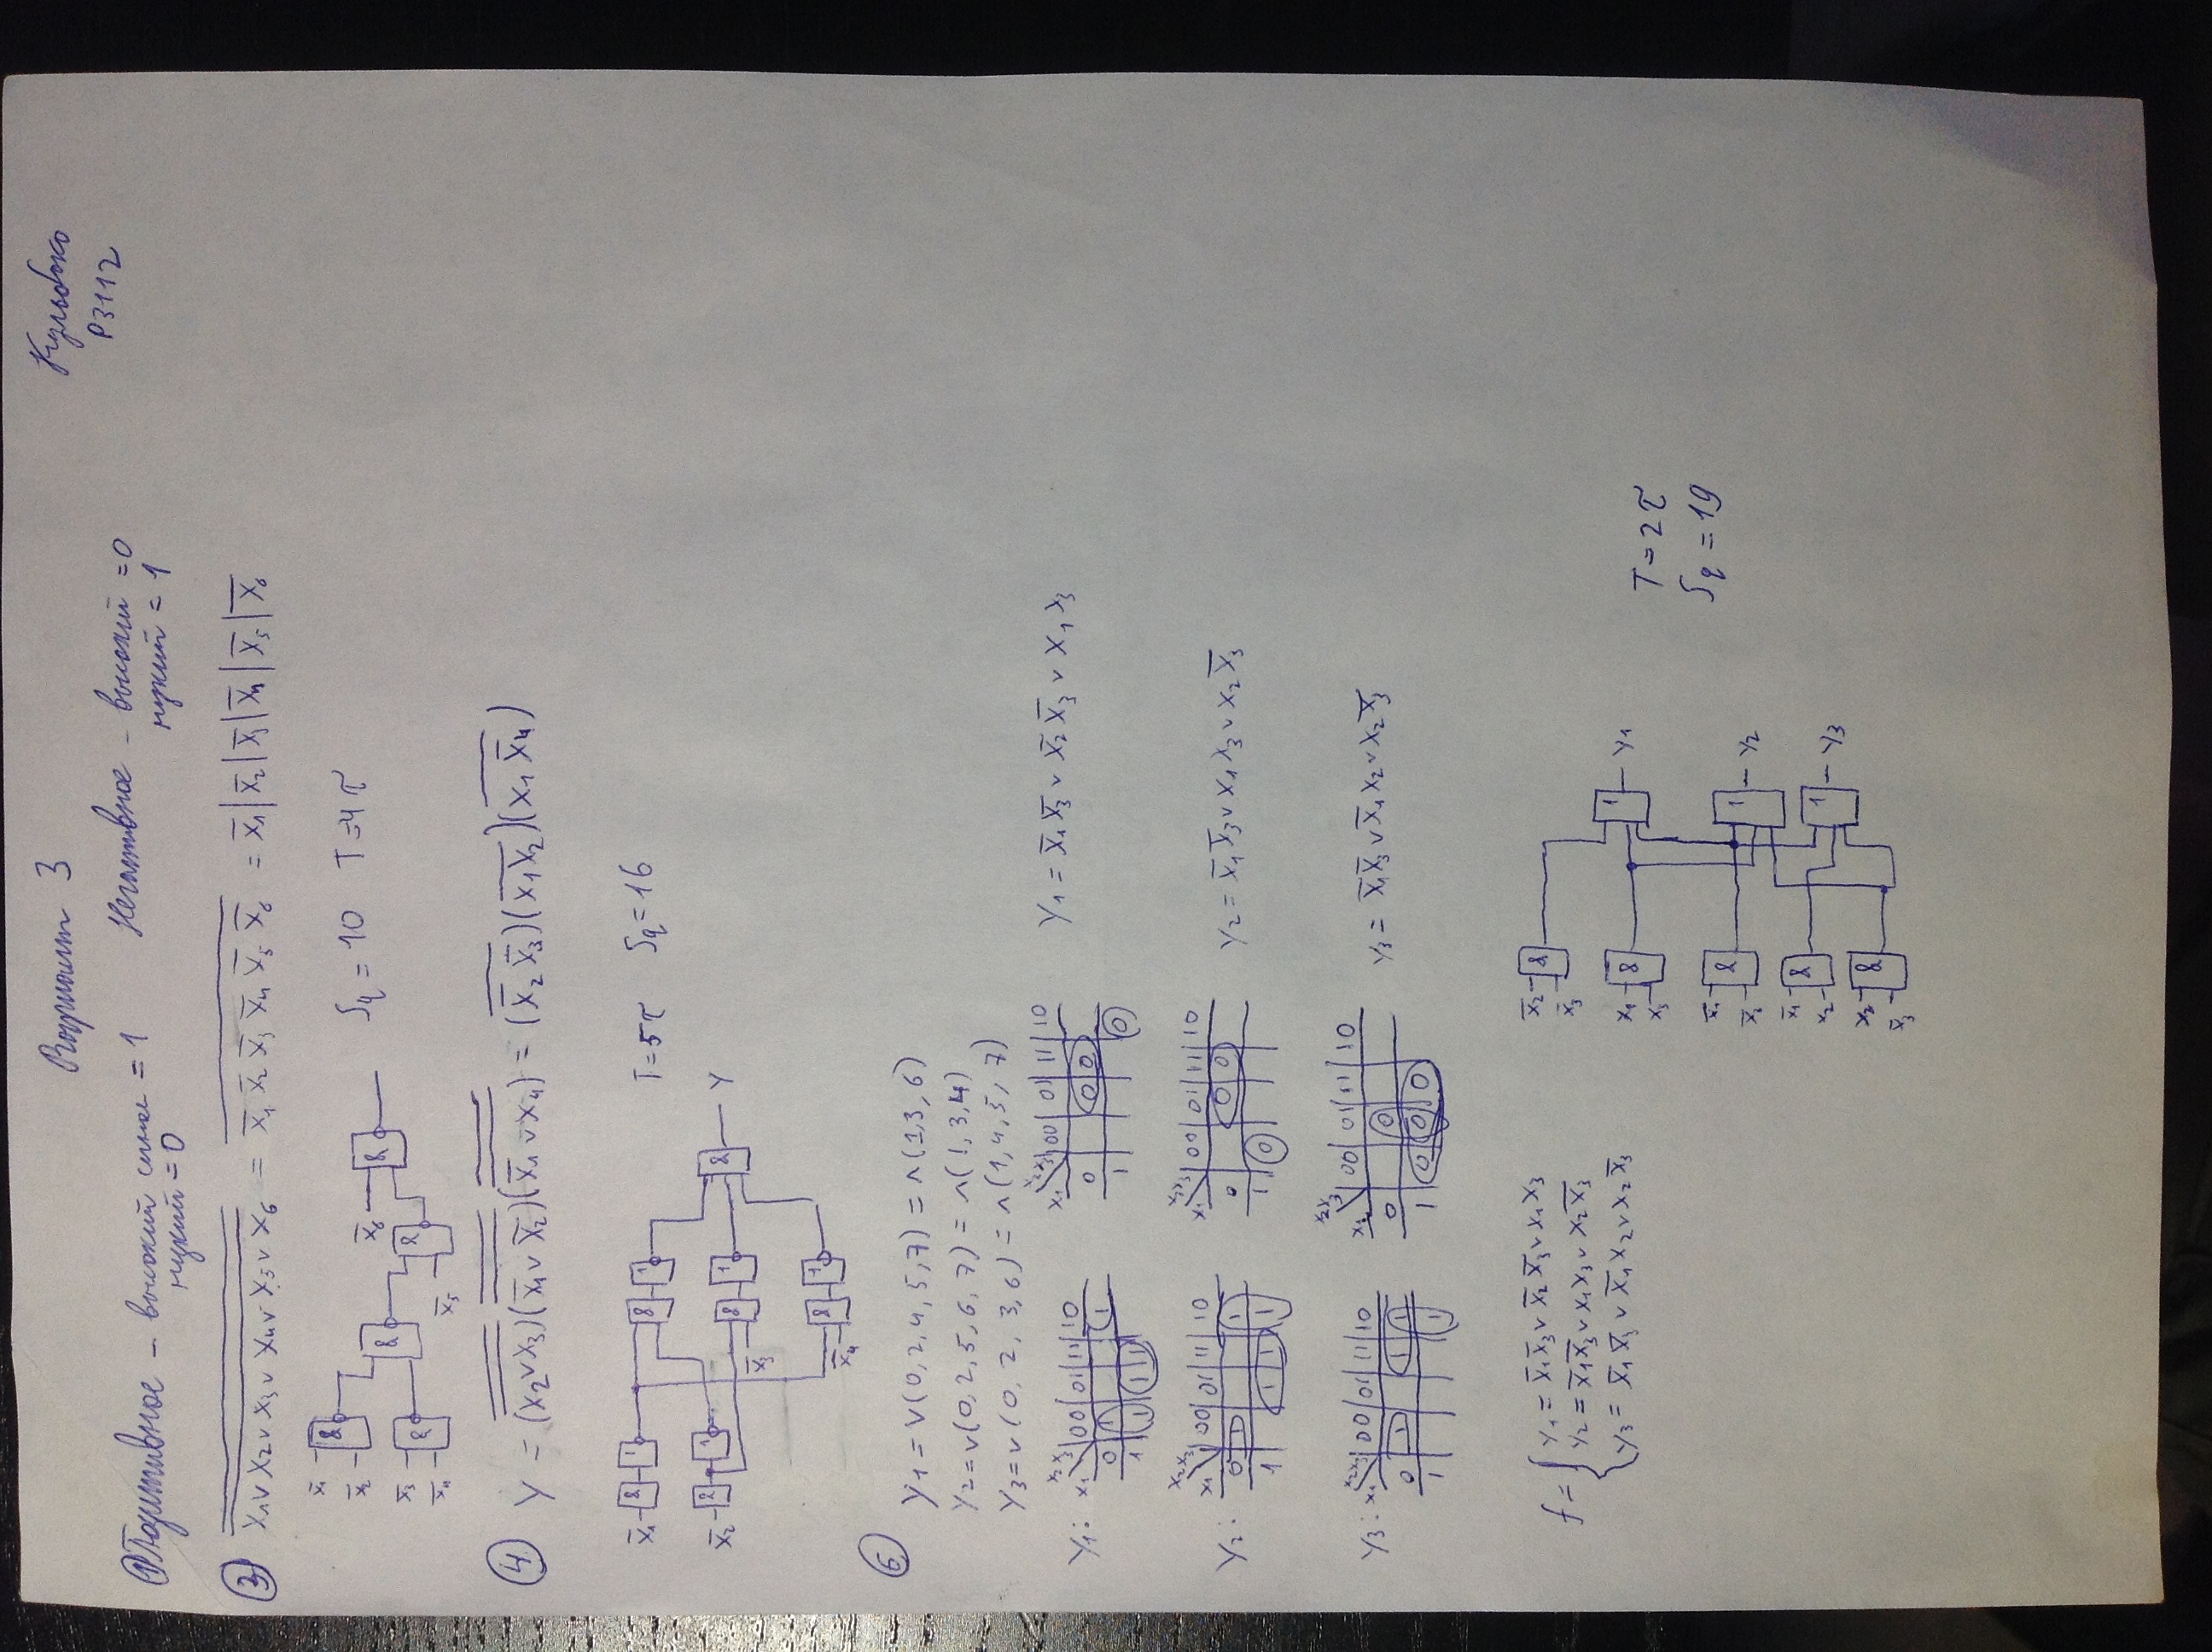 Вариант 3
Кульбако
P3112
① Позитивное – высокий сигнал = 1
низкий = 0
Негативное – высокий = 0
низкий = 1
③ x̿₁ ∨ x₂ ∨ x₃ ∨ x₄ ∨ x₅ ∨ x₆ = x̄₁ x̄₂ x̄₃ x̄₄ x̄₅ x̄₆ = x̄₁|x̄₂|x̄₃|x̄₄|x̄₅|x̄₆
x̄₁
x̄₂
&
x̄₃
x̄₄
&
&
x̄₅
&
x̄₆
&
Sq = 10 T=4τ
④ Y = (x₂∨x₃)(x̄₁∨x̄₂)(x̄₁∨x₄) = (x̄₂ x̄₃)(x₁x₂)(x₁ x̄₄)
x̄₁ & 1
& 1
x̄₂ & 1
x̄₃ & 1
& Y
x̄₄ & 1
T=5τ Sq=16
⑥
Y1 = ∨(0, 2, 4, 5, 7) = ∧(1, 3, 6)
Y2 = ∨(0, 2, 5, 6, 7) = ∧(1, 3, 4)
Y3 = ∨(0, 2, 3, 6) = ∧(1, 4, 5, 7)
Y1: x₁ x₂x₃ 00 01 11 10
0 1 1
1 1 1 1
x₁ x₂x₃ 00 01 11 10
0 0 0
1 0
Y1 = x̄₁x̄₃ ∨ x̄₂x̄₃ ∨ x₁x₃
Y2: x₁ x₂x₃ 00 01 11 10
0 1 1
1 1 1 1
x₁ x₂x₃ 00 01 11 10
0 0 0
1 0
Y2 = x̄₁x̄₃ ∨ x₁x₃ ∨ x₂x̄₃
Y3: x₁ x₂x₃ 00 01 11 10
0 1 1 1
1 1
x₁ x₂x₃ 00 01 11 10
0 0
1 0 0 0
Y3 = x̄₁x̄₃ ∨ x̄₁x₂ ∨ x₂x̄₃
f = { Y1 = x̄₁x̄₃ ∨ x̄₂x̄₃ ∨ x₁x₃
Y2 = x̄₁x̄₃ ∨ x₁x₃ ∨ x₂x̄₃
Y3 = x̄₁x̄₃ ∨ x̄₁x₂ ∨ x₂x̄₃
x̄₂
x̄₃
&
x₁
x₃
&
1 Y1
x̄₁
x̄₃
&
1 Y2
x̄₁
x₂
&
1 Y3
x₂
x̄₃
&
T=2τ
Sq = 19